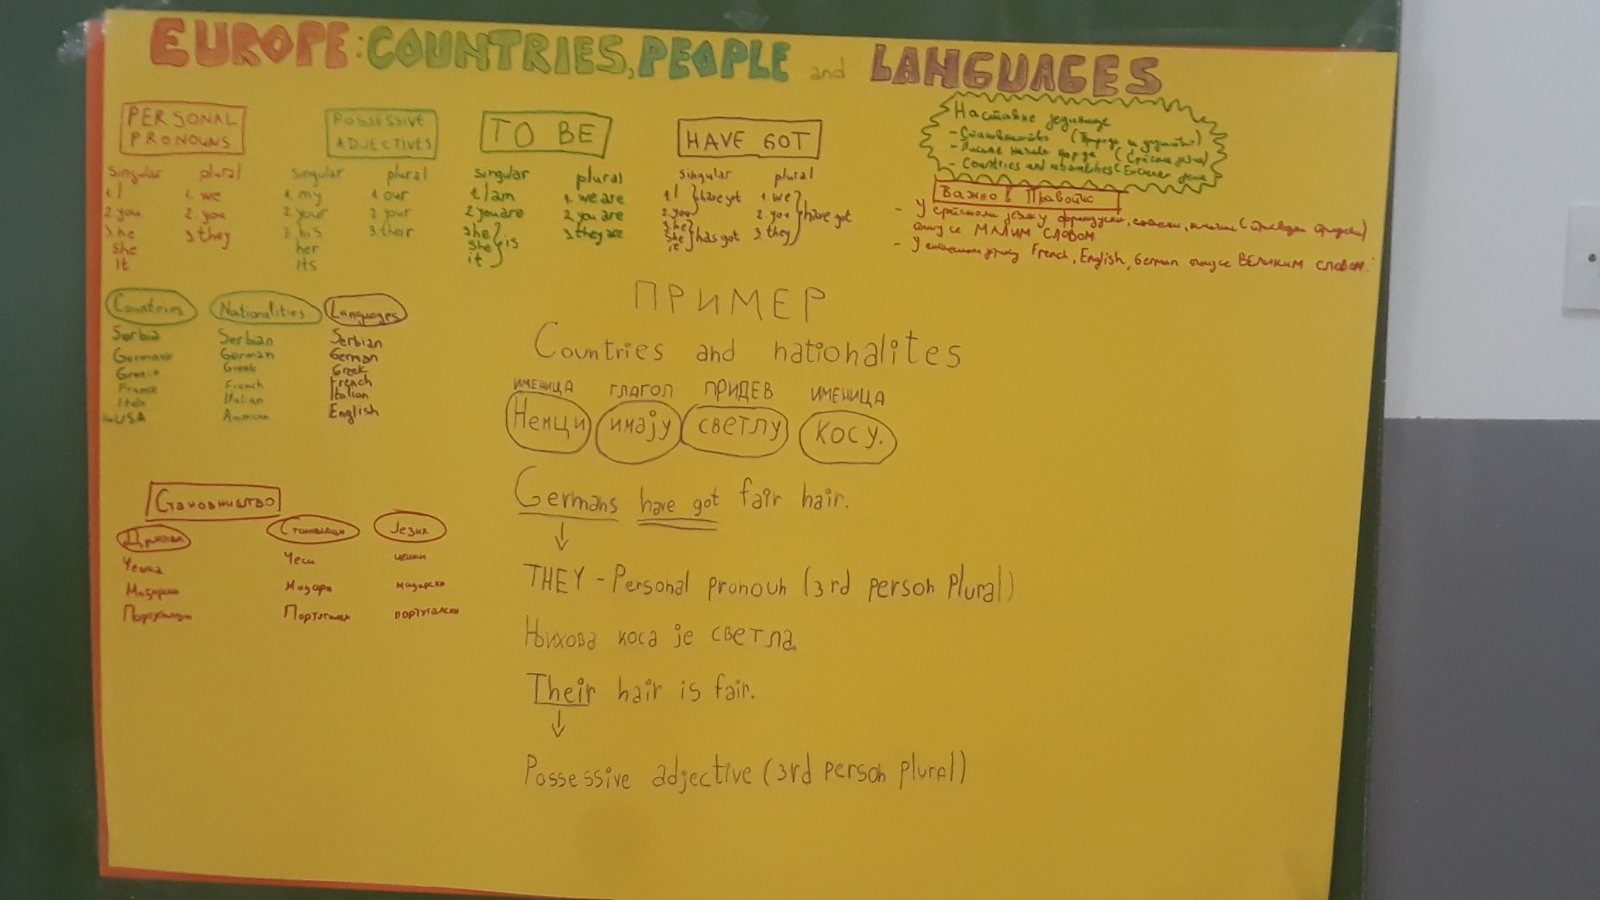 EUROPE: COUNTRIES, PEOPLE and LANGUAGES
PERSONAL
PRONOUNS
singular plural
1. I 1. we
2. you 2. you
3. he 3. they
she
it
POSSESSIVE
ADJECTIVES
singular plural
1. my 1. our
2. your 2. your
3. his 3. their
her
its
TO BE
singular plural
1. I am 1. we are
2. you are 2. you are
3. he 3. they are
she is
it
HAVE GOT
singular plural
1. I have got 1. we
2. you 2. you have got
3. he 3. they
she has got
it
Наставне јединице
- Становништво (Природа и друштво)
- Писање назива народа (Српски језик)
- Countries and nationalities (Енглески језик)
Важно! Правопис
- У српском језику француски, српски, (присвојни придеви)
пишу се МАЛИМ СЛОВОМ
- У енглеском језику French, English, German пишу се ВЕЛИКИМ СЛОВОМ.
Countries Nationalities Languages
Serbia Serbian Serbian
Germany German German
Greece Greek Greek
France French French
Italy Italian Italian
the USA American English
ПРИМЕР
Countries and nationalites
ИМЕНИЦА ГЛАГОЛ ПРИДЕВ ИМЕНИЦА
Немци имају СВЕТЛУ КОСУ.
Germans have got fair hair.
THEY - Personal pronoun (3rd person Plural)
Њихова коса је СВЕТЛА
Their hair is fair.
Possessive adjective (3rd person plural)
СТАНОВНИШТВО
Држава Становници Језик
Чешка Чеси чешки
Мађарска Мађари мађарски
Португалија Португалци португалски